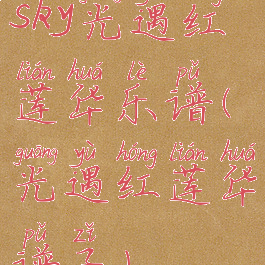 sky光遇红
lián huá lè pǔ
莲华乐谱(
guāng yù hóng lián huá
光遇红莲华
pǔ zǐ
谱子)